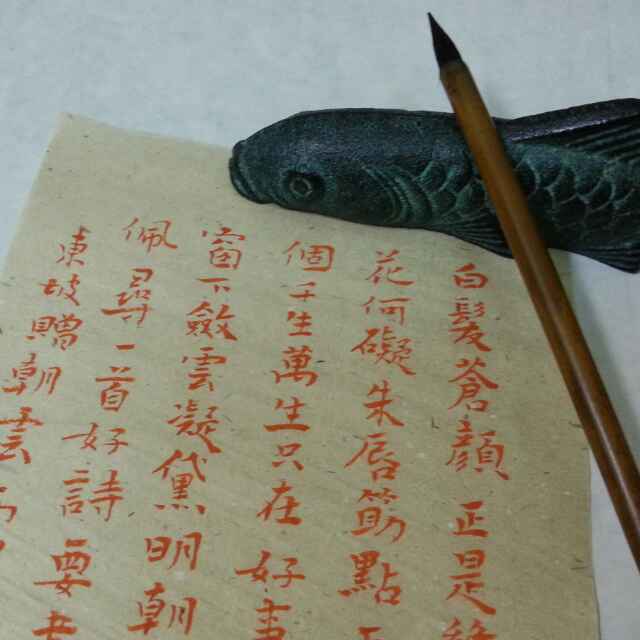 白髮蒼顏正是
花何礙朱唇筯點
個千生萬生只在好事
窗下斂雲凝黛明朝
佩尋一首好詩要書
東坡贈朝雲